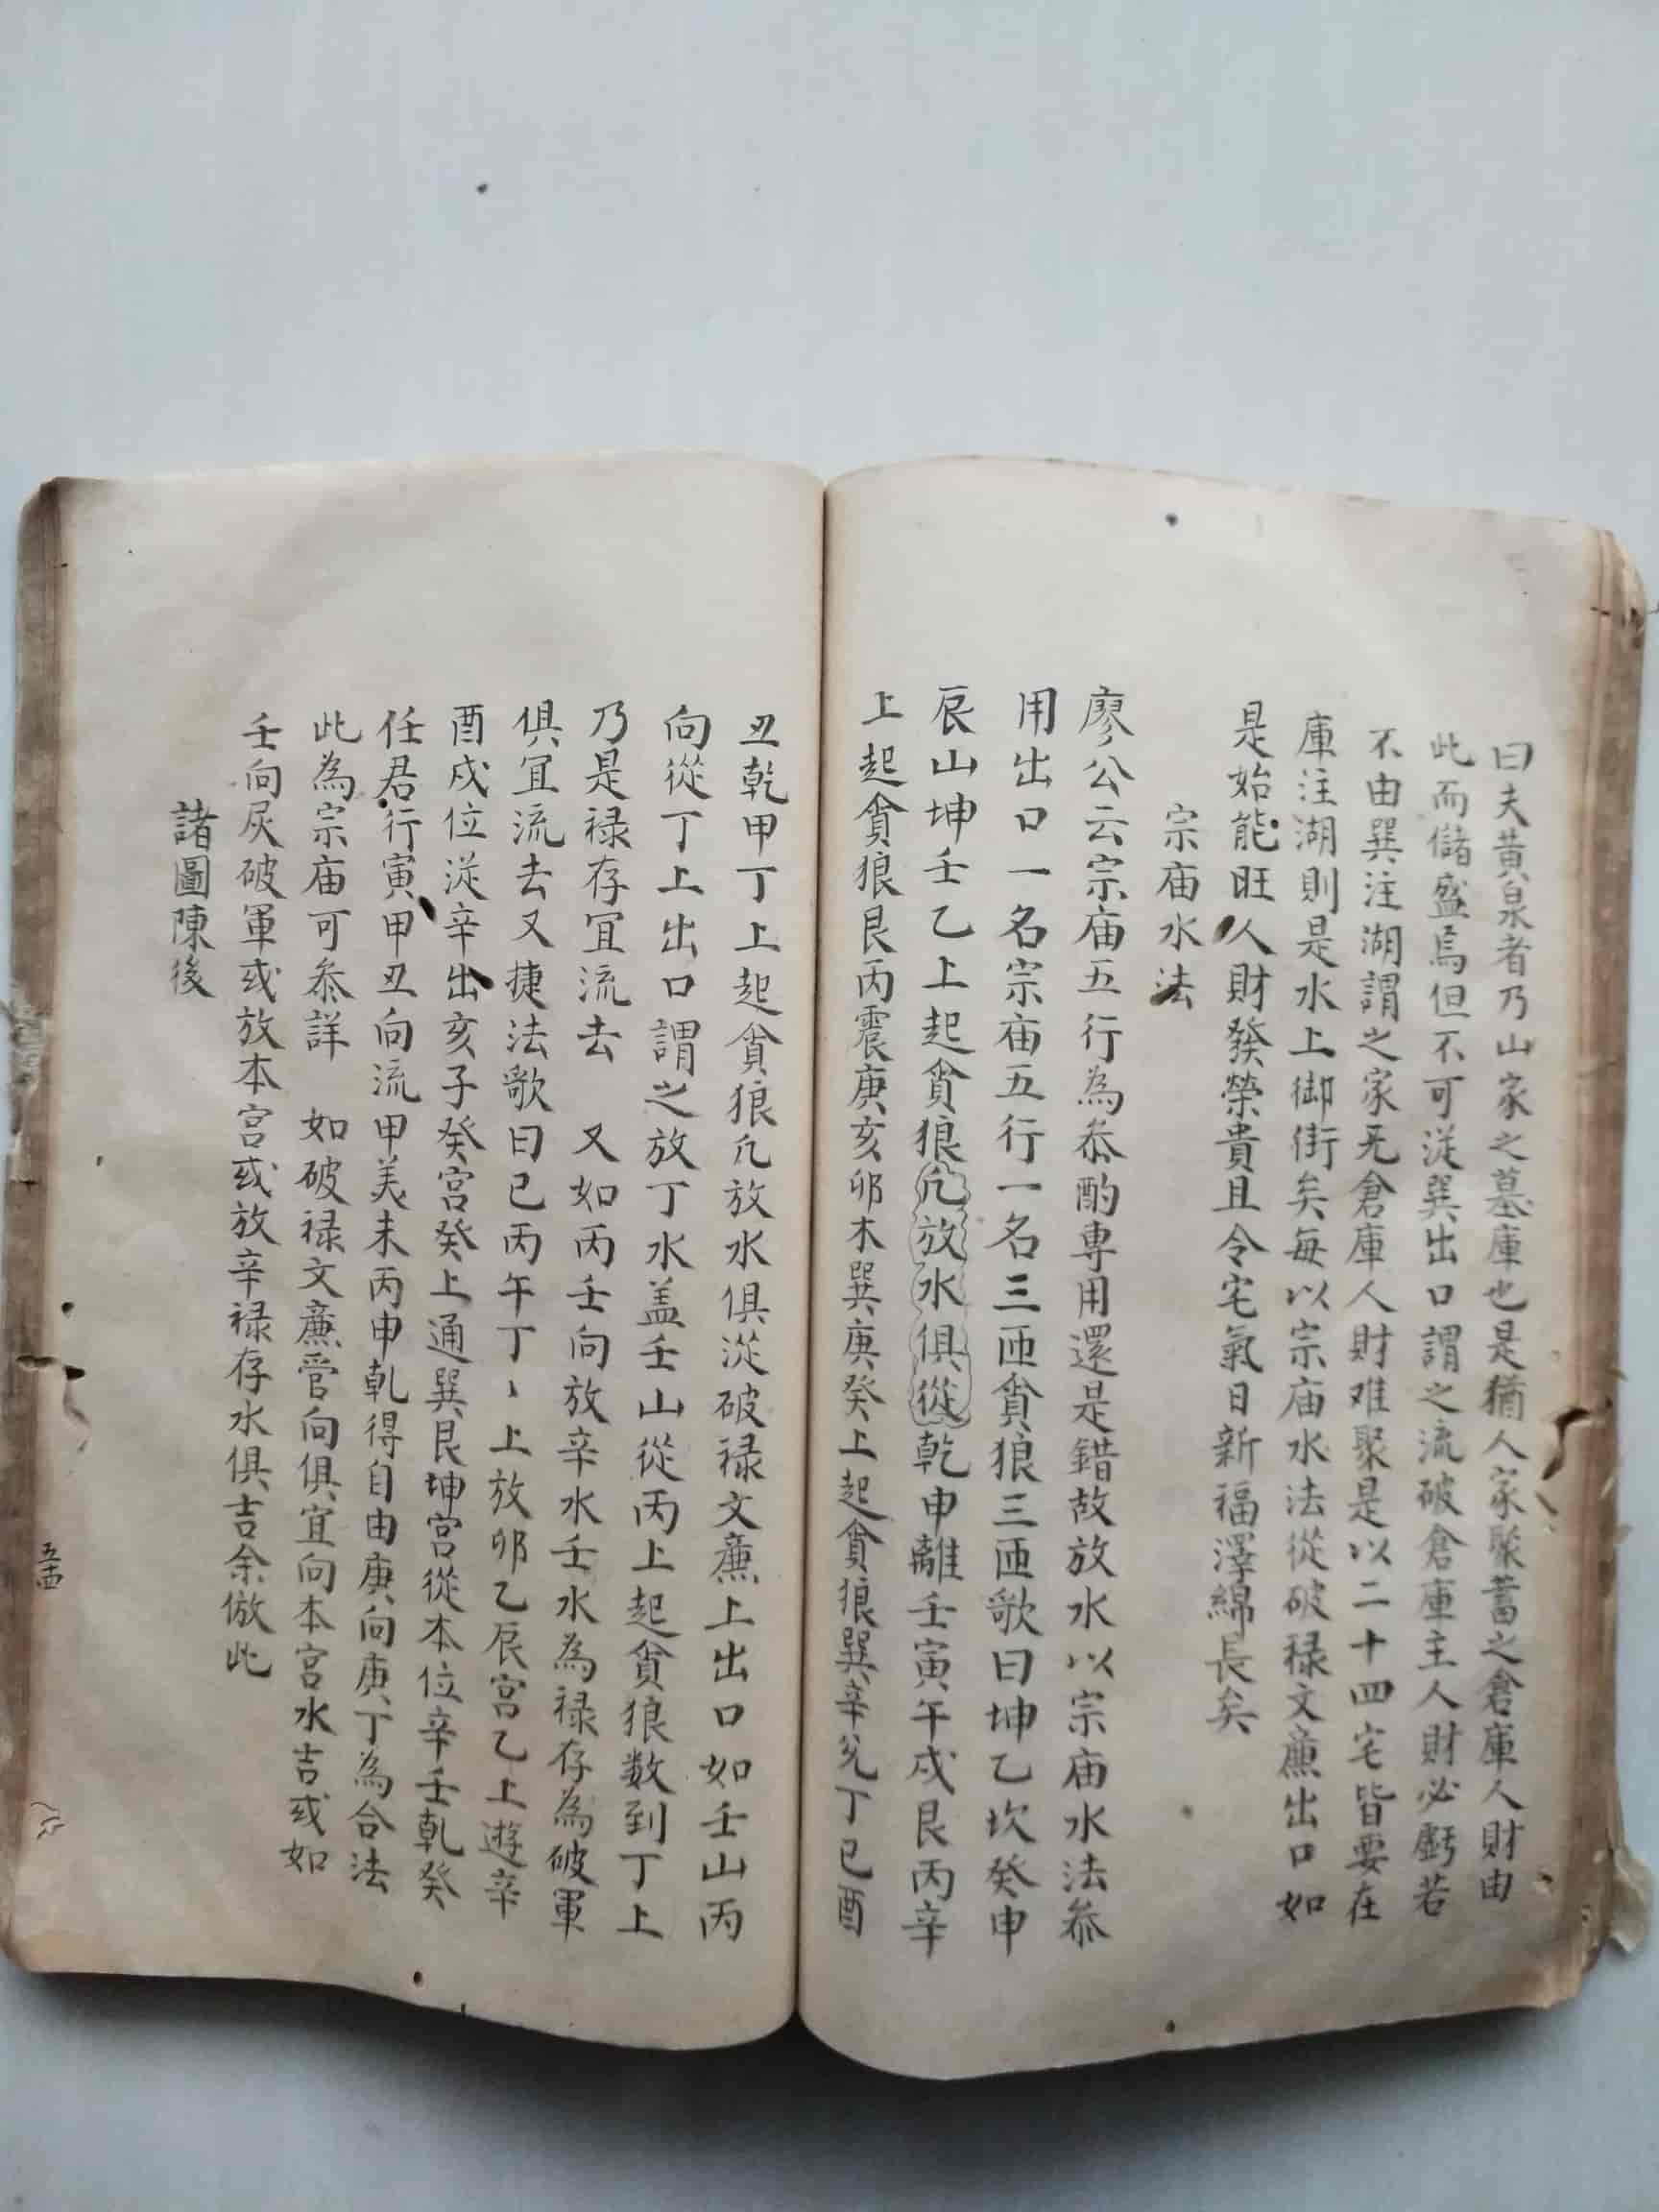 曰夫黄泉者乃山家之墓庫也是猶人家聚蓄之倉庫人財由
此而儲盛焉但不可従巽出口謂之流破倉庫主人財必虧若
不由巽注湖謂之家无倉庫人財难聚是以二十四宅皆要在
庫注湖則是水上御街矣每以宗庙水法從破禄文㢘出口如
是始能旺人財發榮貴且令宅氣日新福澤綿長矣
宗庙水法
廖公云宗庙五行為叅酌專用還是錯故放水以宗庙水法叅
用出口一名宗庙五行一名三匝貪狼三匝歌曰坤乙坎癸申
辰山坤壬乙上起貪狼凢放水俱從乾申離壬寅午戌艮丙辛
上起貪狼艮丙震庚亥卯木巽庚癸上起貪狼巽辛兊丁巳酉
丑乾甲丁上起貪狼凢放水俱従破禄文㢘上出口如壬山丙
向從丁上出口謂之放丁水盖壬山從丙上起貪狼数到丁上
乃是禄存冝流去 又如丙壬向放辛水壬水為禄存為破軍
俱冝流去又捷法歌曰巳丙午丁丶上放卯乙辰宫乙上遊辛
酉戌位従辛出亥子癸宫癸上通巽艮坤宫從本位辛壬乹癸
任君行寅甲丑向流甲美未丙申乹得自由庚向庚丁為合法
此為宗庙可叅詳 如破禄文㢘管向俱宜向本宫水吉或如
壬向辰破軍或放本宫或放辛禄存水俱吉余倣此
諸圖陳後
五十四